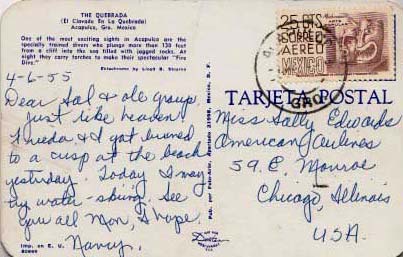 THE QUEBRADA
(El Clavado En La Quebrada)
Acapulco, Gro. Mexico
One of the most exciting sights in Acapulco are the
specially trained divers who plunge more than 130 feet
from a cliff into the sea filled with jagged rocks. At
night they carry torches to make their spectacular "Fire
Dive.
Ektachrome by
4-6-55
Dear Sal & ole group,
Just like heaven!
& I got burned
to a crisp at the beach
yesterday. Today I may
try water-skiing. See
you all Mon, I hope.
Nancy.
Imp. en E. U.
Pub. por Fisa-Arte, Apartado 21908, Mexico, D. F.
25 CTS.
CORREO
AEREO
MEXICO
GRO.
TARJETA POSTAL
Miss Sally Edwards
American Airlines
59 E. Monroe
Chicago, Illinois
USA.
Dexter